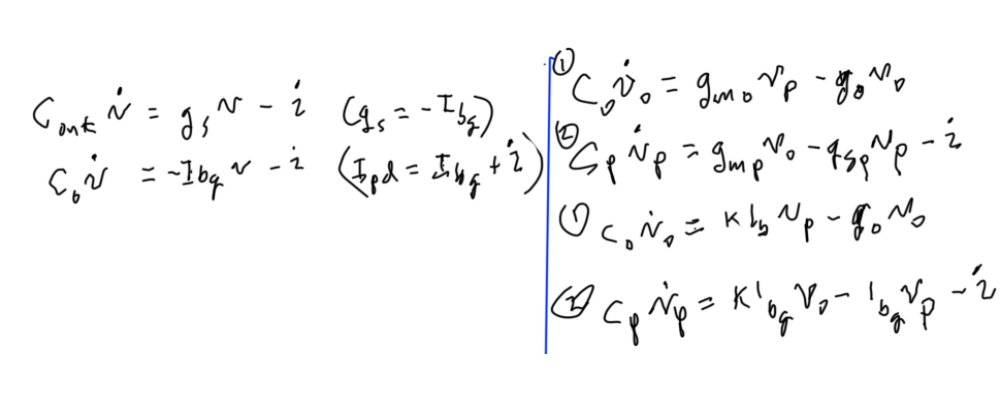 C_out v̇ = g_s v - i (g_s = -I_bg)
C_o v̇ = -I_bg v - i (I_pd = I_bg + i)
① C_o v̇_o = g_mo v_p - g_o v_o
② C_p v̇_p = g_mp v_o - g_sp v_p - i
① C_o v̇_o = K I_b v_p - g_o v_o
② C_p v̇_p = K I_bg v_o - I_bg v_p - i